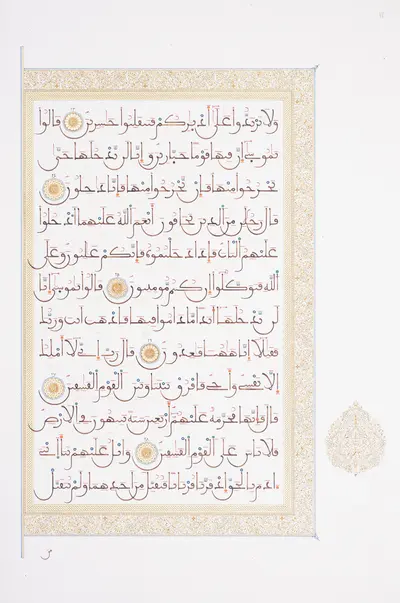 ولا ترتدوا على أدبركم فتنقلبوا خسرين قالوا
يموسى إن فيها قوما جبارين وإنا لن ندخلها حتى
يخرجوا منها فإن يخرجوا منها فإنا داخلون
قال رجلن من الذين يخافون أنعم الله عليهما ادخلوا
عليهم الباب فإذا دخلتموه فإنكم غلبون وعلى
الله فتوكلوا إن كنتم مومنين قالوا يموسى إنا
لن ندخلها أبدا ما داموا فيها فاذهب أنت وربك
فقتلا إنا ههنا قعدون قال رب إني لا أملك
إلا نفسي وأخي فافرق بيننا وبين القوم الفسقين
قال فإنها محرمة عليهم أربعين سنة يتيهون في الأرض
فلا تاس على القوم الفسقين واتل عليهم نبأ ابني
ءادم بالحق إذ قربا قربانا فتقبل من أحدهما ولم يتقبل
من